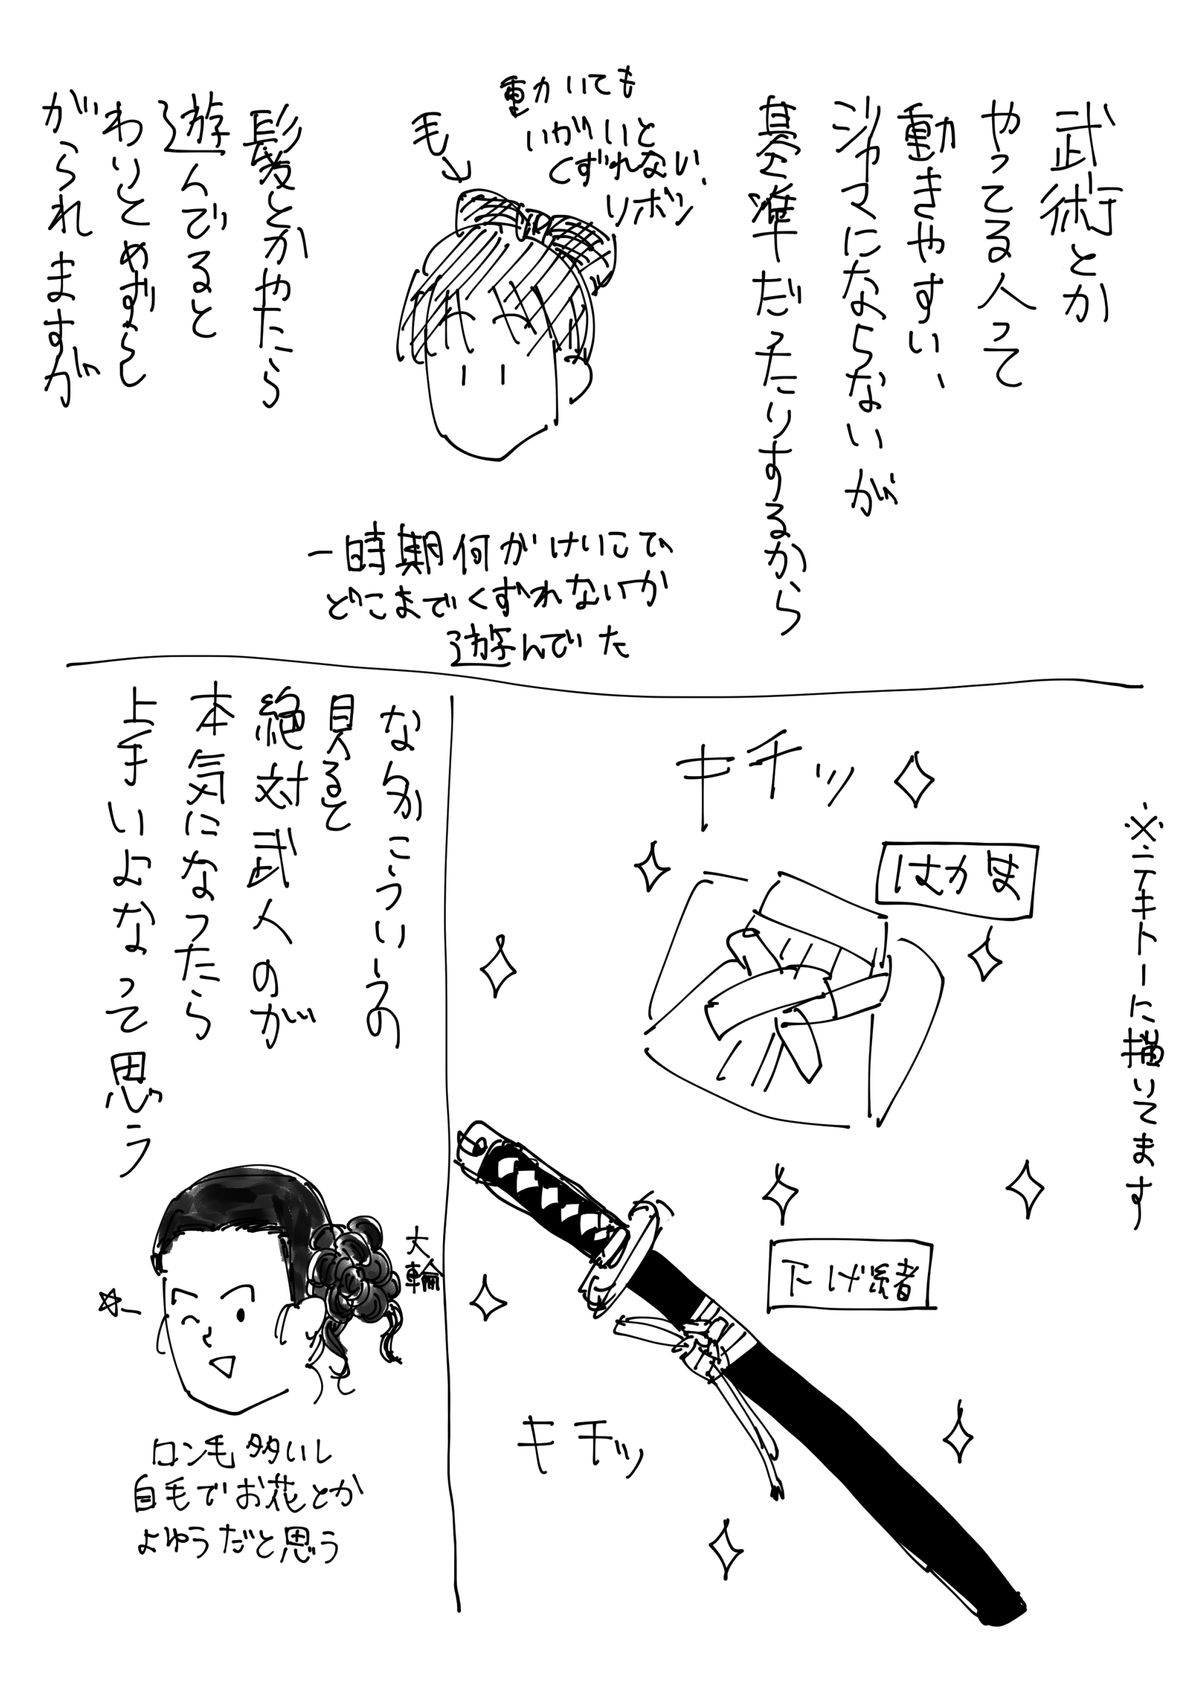 武術とか
やってる人って
動きやすい、
ジャマにならないが
基準だったりするから
動かいても
いがいと
くずれない
リボン
毛
髪とかやたら
遊んでると
わりとめずらし
がられますが
一時期何がけいこで
どこまでくずれないか
遊んでいた
※テキトーに描いてます
キチッ
はかま
下げ緒
キチッ
なんかこういうの
見ると
絶対武人のが
本気になったら
上手いよなって思う
大輪
ロン毛多いし
自毛でお花とか
よゆうだと思う